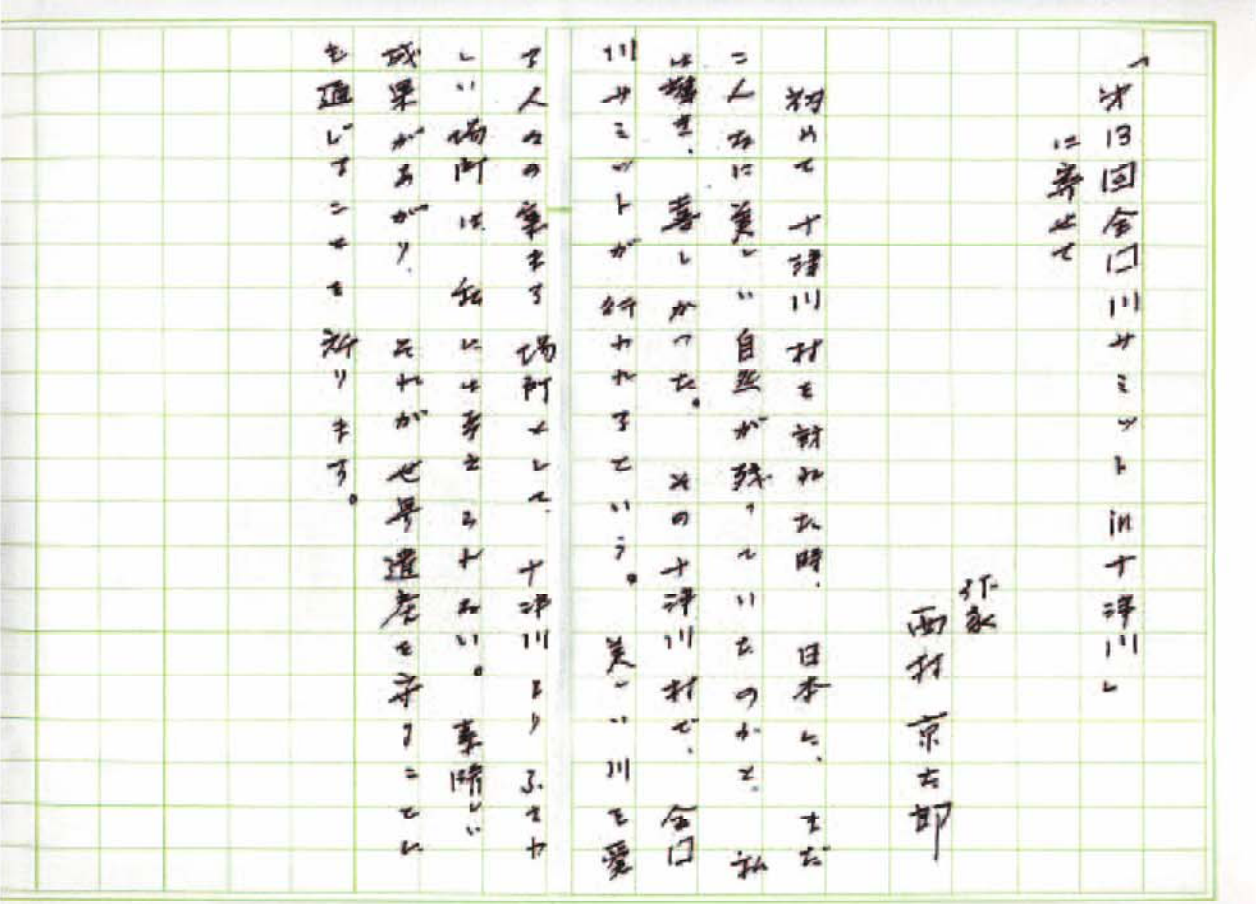 「第13回全国川サミットin十津川」
に寄せて
作家
西村京太郎
初めて十津川村を訪れた時、日本に、まだ
こんなに美しい自然が残っていたのかと、私
は驚き、喜しかった。その十津川村で、全国
川サミットが行われるという。美しい川を愛
する人々の集まる場所として、十津川よりふさわ
しい場所は、私には考えられない。素晴しい
成果があがり、それが世界遺産を守ることに
も通じることを祈ります。